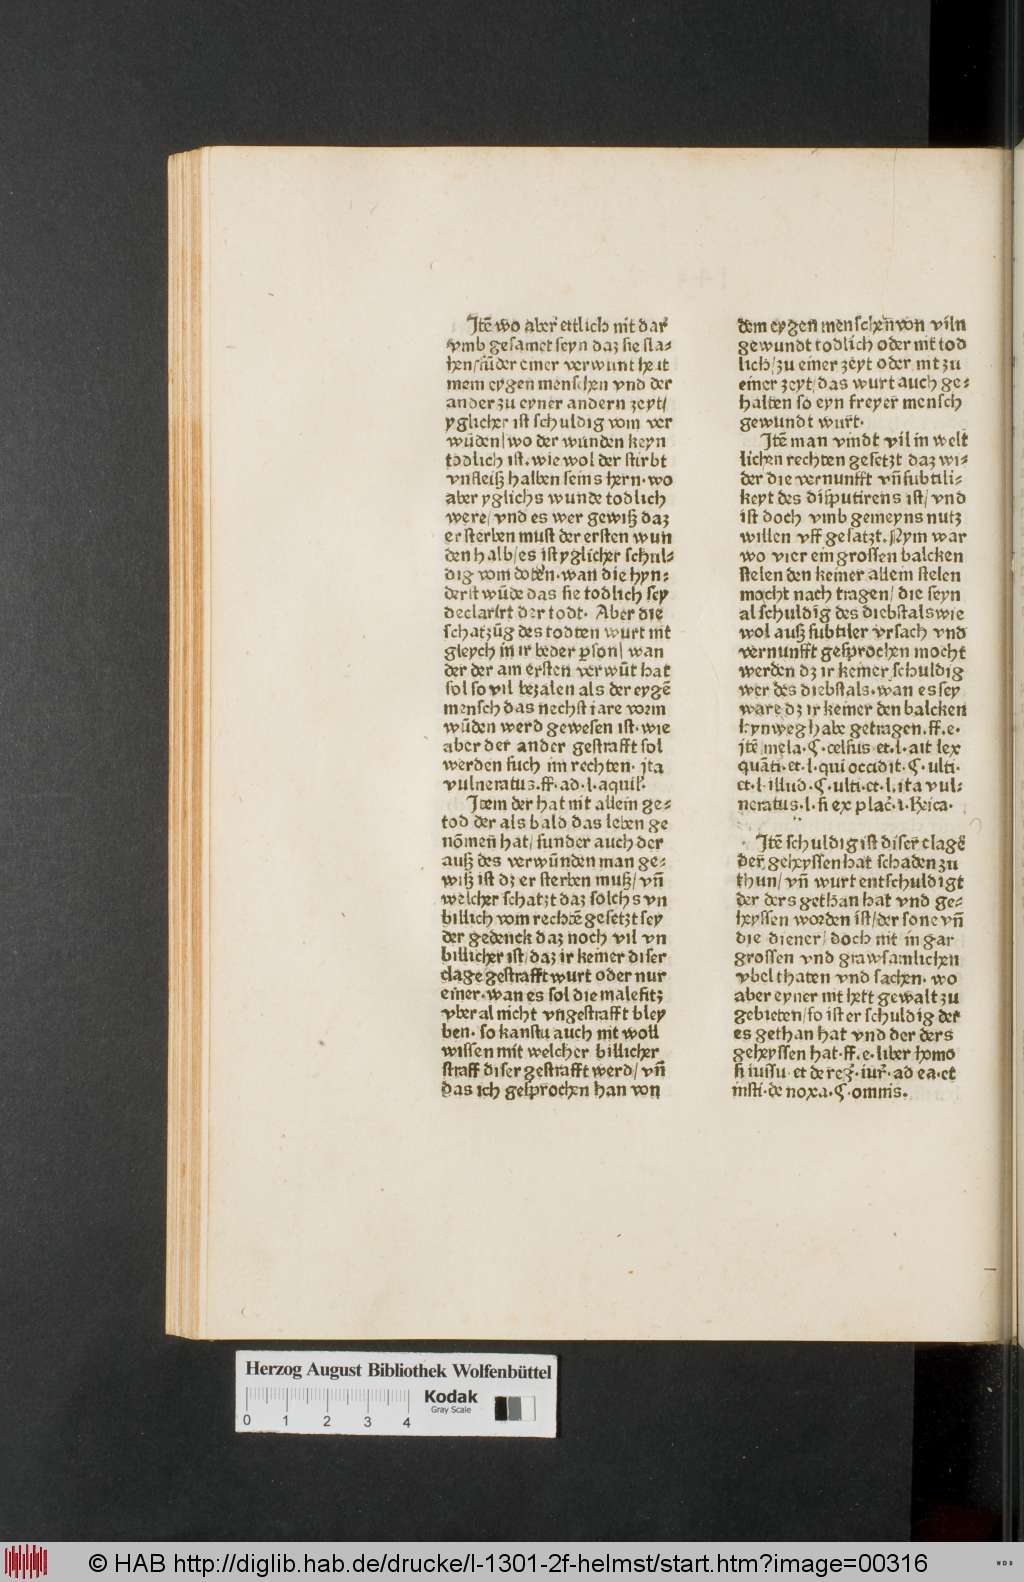 Jtē wo aber ettlich nit dar
vmb gesamet seyn daz sie sla-
hen/sūder einer verwunt heüt
mein eygen menschen vnd der
ander zu eyner andern zeyt/
yglicher ist schuldig vom ver
wūden/wo der wunden keyn
todlich ist. wie wol der stirbt
vnfleiß halben seins hern. wo
aber yglichs wunde todlich
were/ vnd es wer gewiß daz
er sterben must der ersten wun
den halb/es ist yglicher schul-
dig vom doten. wan die hyn-
derst wūde das sie todlich sey
declarirt der todt. Aber die
schatzūg des todten wurt nit
gleych in ir beder ꝑson/ wan
der der am ersten verwūt hat
sol so vil bezalen als der eygē
mensch das nechst iare vorm
wūden werd gewesen ist. wie
aber der ander gestrafft sol
werden such im rechten. ita
vulneratus. ff. ad. l. aquil̕.
Jtem der hat nit allein ge-
tod der als bald das leben ge
nōmen hat/ sunder auch der
auß des verwūnden man ge-
wiß ist dz er sterben muß/ vn̄
welcher schatzt daz solchs vn
billich vom rechtē gesetzt sey
der gedenck daz noch vil vn
billicher ist/ daz ir keiner diser
clage gestrafft wurt oder nur
einer. wan es sol die malefitz
vberal nicht vngestrafft bley
ben. so kanstu auch nit woll
wissen mit welcher billicher
straff diser gestrafft werd/ vn̄
das ich gesprochen han von
dem eygen menschen von viln
gewundt todlich oder nit tod
lich/ zu einer zeyt oder nit zu
einer zeyt/ das wurt auch ge-
halten so eyn freyer mensch
gewundt wurt.
Jtē man vindt vil in welt
lichen rechten gesetzt daz wi-
der die vernunfft vn̄ subtili-
keyt des disputirens ist/ vnd
ist doch vmb gemeyns nutz
willen vff gesatzt. Nym war
wo vier ein grossen balcken
stelen den keiner allein stelen
mocht nach tragen/ die seyn
al schuldig des diebstals wie
wol auß subtiler vrsach vnd
vernunfft gesprochen mocht
werden dz ir keiner schuldig
wer des diebstals. wan es sey
ware dz ir keiner den balcken
hynweg habe getragen. ff. e.
itē mela. ¶. celsus et. l. ait lex
quāti. et. l. qui occidit. ¶. ulti.
et. l. illud. ¶. ulti. et. l. ita vul-
neratus. l. si ex plac̄. i. Reica.
Jtē schuldig ist diser clagē
der geheyssen hat schaden zu
thun/ vn̄ wurt entschuldigt
der ders gethan hat vnd ge-
heyssen worden ist/ der sone vn̄
die diener/ doch nit in gar
grossen vnd grawsamlichen
vbelthaten vnd sachen. wo
aber eyner nit hett gewalt zu
gebieten/ so ist er schuldig der
es gethan hat vnd der ders
geheyssen hat. ff. e. liber homo
si iussu. et de reg̕. iur̕. ad ea. et
insti. de noxa. ¶. omnis.
Herzog August Bibliothek Wolfenbüttel
Kodak
Gray Scale
0 1 2 3 4
© HAB http://diglib.hab.de/drucke/l-1301-2f-helmst/start.htm?image=00316